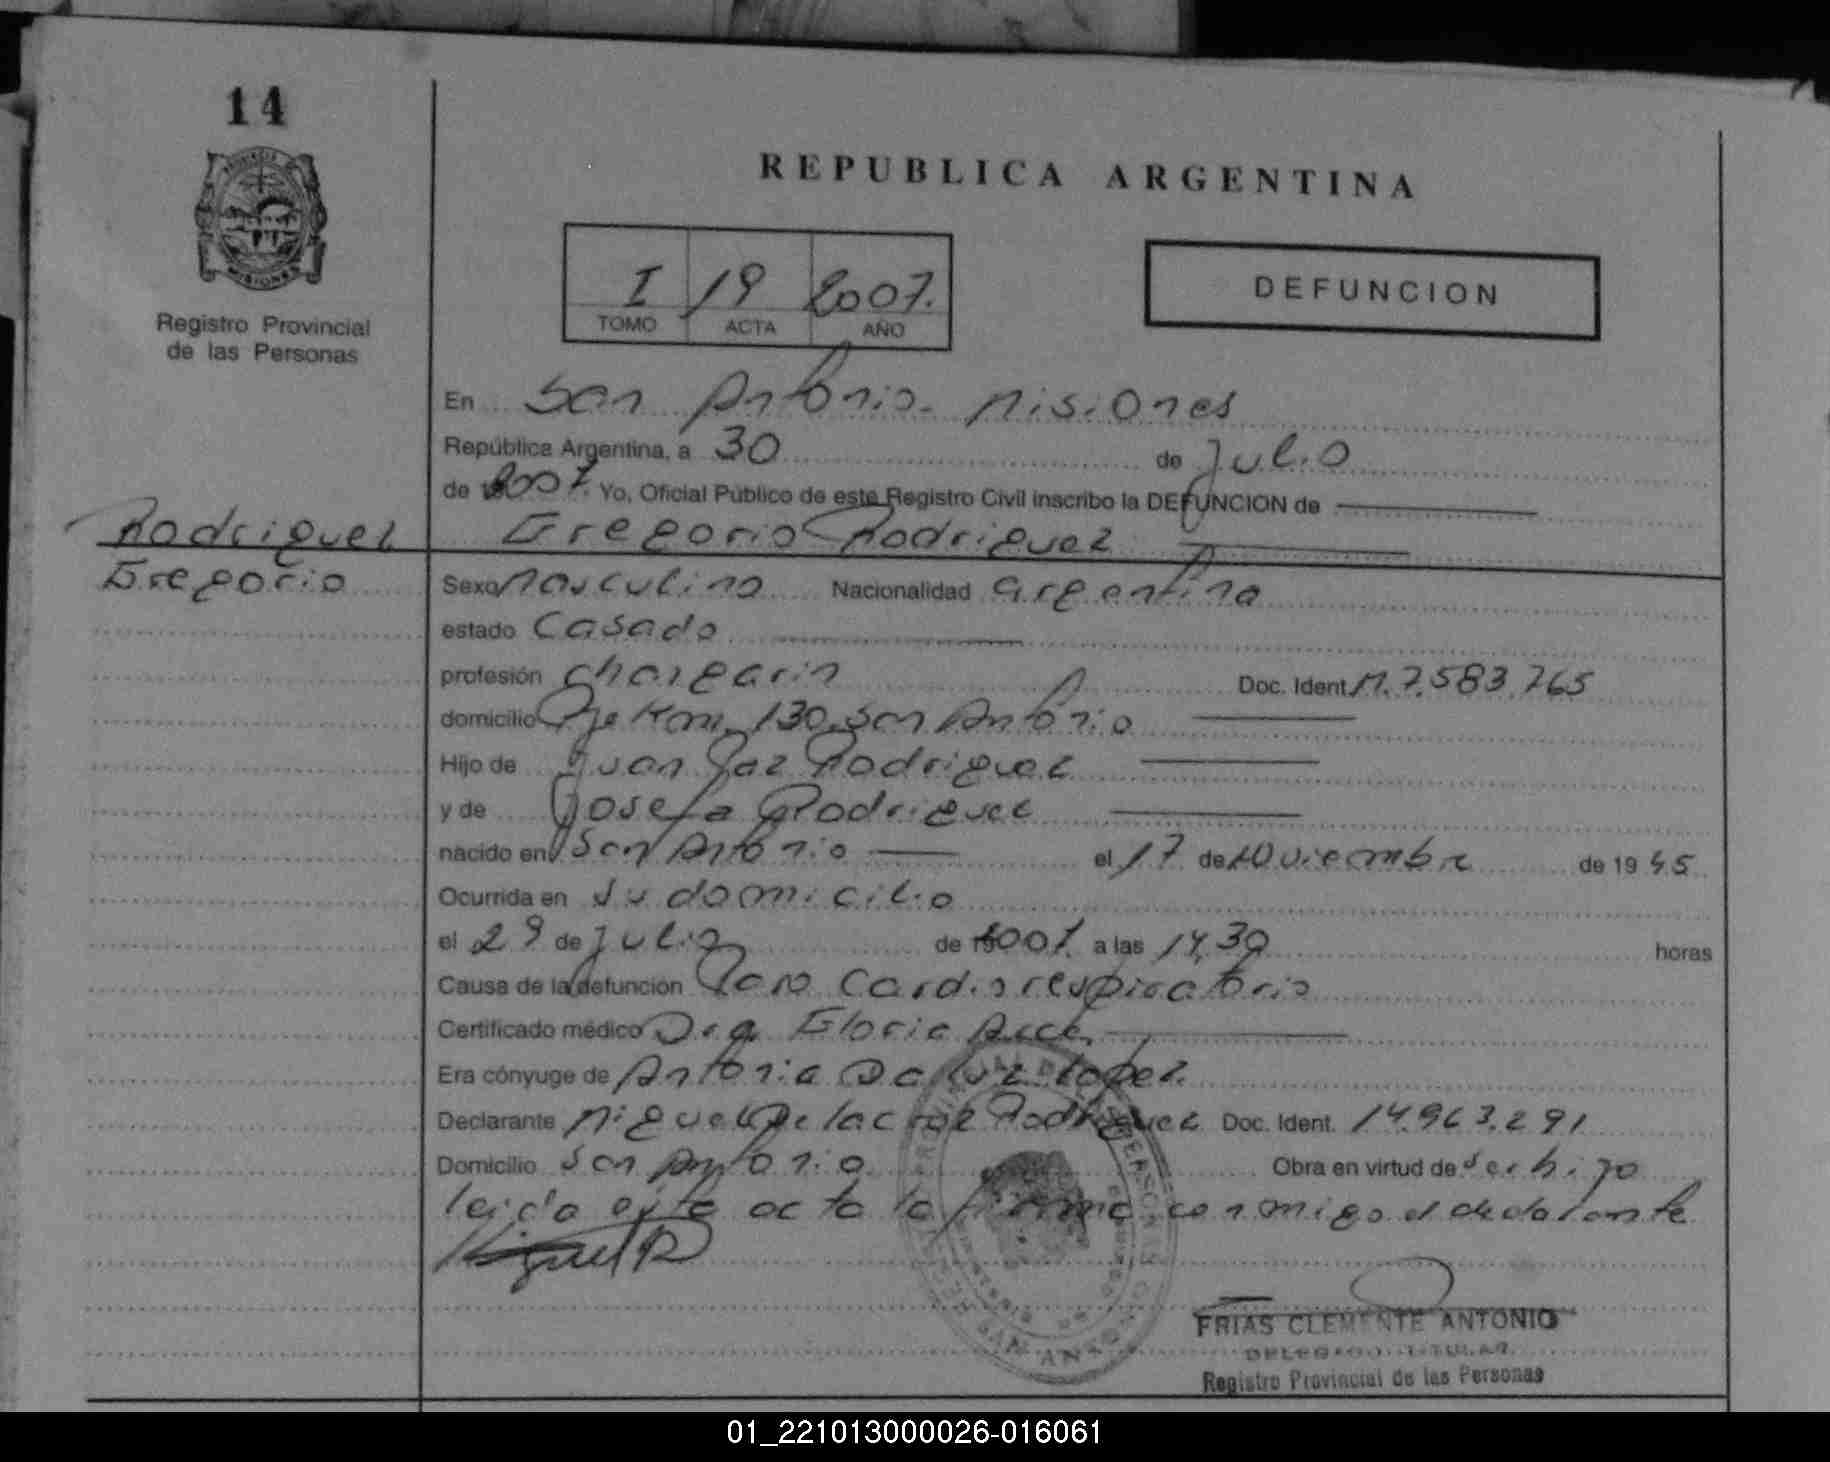 14
PROVINCIA DE
MISIONES
Registro Provincial
de las Personas
REPUBLICA ARGENTINA
I 19 2007.
TOMO ACTA AÑO
DEFUNCION
En San Antonio - Misiones
República Argentina, a 30 de Julio
de 2007. Yo, Oficial Público de este Registro Civil inscribo la DEFUNCION de
Gregorio Rodriguez
Rodriguez
Gregorio
Sexo Masculino Nacionalidad argentina
estado Casado
profesión Doc. Ident. M. 7.583.765
domicilio Pje Km. 130. San Antonio
Hijo de Juan Paz Rodriguez
y de Josefa Rodriguez
nacido en San Antonio el 17 de Noviembre de 1945
Ocurrida en su domicilio
el 29 de Julio de 2007. a las 14,30 horas
Causa de la defunción Paro Cardiorespiratorio
Certificado médico Dra Gloria
Era cónyuge de Antonia Da Luz Lopez.
Declarante Miguel Rodriguez Doc. Ident. 14.963.291
Domicilio San Antonio Obra en virtud de ser hijo
leida esta acta la firma conmigo el declarante
Miguel R
FRIAS CLEMENTE ANTONIO
DELEGADO TITULAR
Registro Provincial de las Personas
01_221013000026-016061